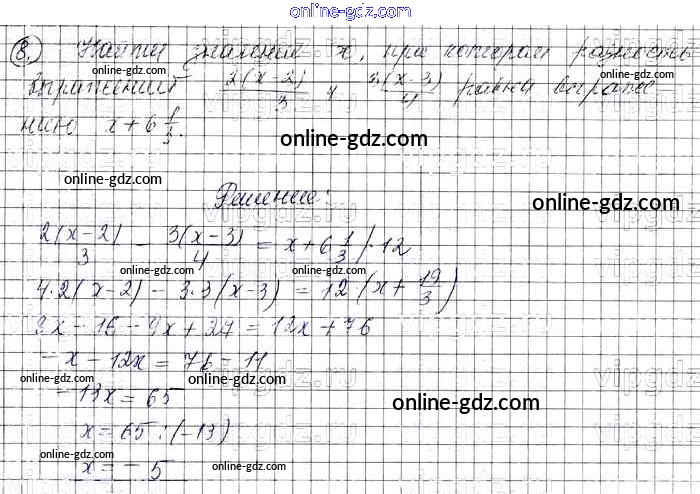 online-gdz.com
8.) Найти значение x, при котором разность
выражений 2(x-2)/3 и 3(x-3)/4 равна выраже
нию x + 6 1/3.
Решение:
2(x-2)/3 - 3(x-3)/4 = x + 6 1/3 /·12
4·2(x-2) - 3·3(x-3) = 12(x + 19/3)
8x - 16 - 9x + 27 = 12x + 76
-x - 12x = 76 - 11
-13x = 65
x = 65 : (-13)
x = -5
online-gdz.com
online-gdz.com
online-gdz.com
online-gdz.com
online-gdz.com
online-gdz.com
online-gdz.com
online-gdz.com
online-gdz.com
online-gdz.com
online-gdz.com
online-gdz.com
online-gdz.com
vipgdz.ru
vipgdz.ru